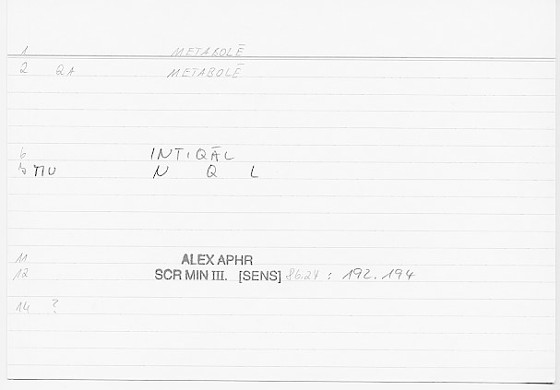 1 METABOLĒ
2 QA METABOLĒ
6 INTIQĀL
b TIU N Q L
11 ALEX APHR
12 SCR MIN III. [SENS] 86.27 : 192.194
14 ?